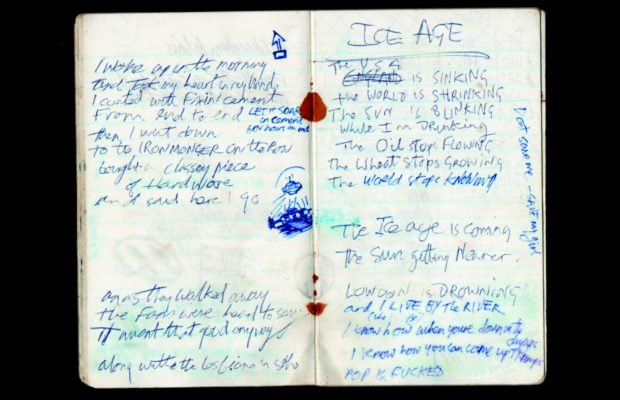 I woke up in the morning
and my heart in my hand
I coated with cement
From end to end
LET IT SOAK
in cement
FOR hours on end
then I went down
to IRONMONGER on the Row
bought a classy piece
of Hardware
and said here I go
as they walked away
the Fans were heard to say
It wasnt that good anyway
along with the lesbians in
ICE AGE
The USA
IS SINKING
the WORLD IS SHRINKING
The SUN IS BLINKING
While I'm DRINKING
The Oil stops FLOWING
The Wheat stops GROWING
The WORLD stops KNOWING
I cant save me - save my girl
The Ice age is coming
the Sun getting Nearer.
LONDON is DROWNING
and, I LIVE BY the RIVER
I know how when youre down in the dumps
I know how you can come up Trumps
POP IS FUCKED